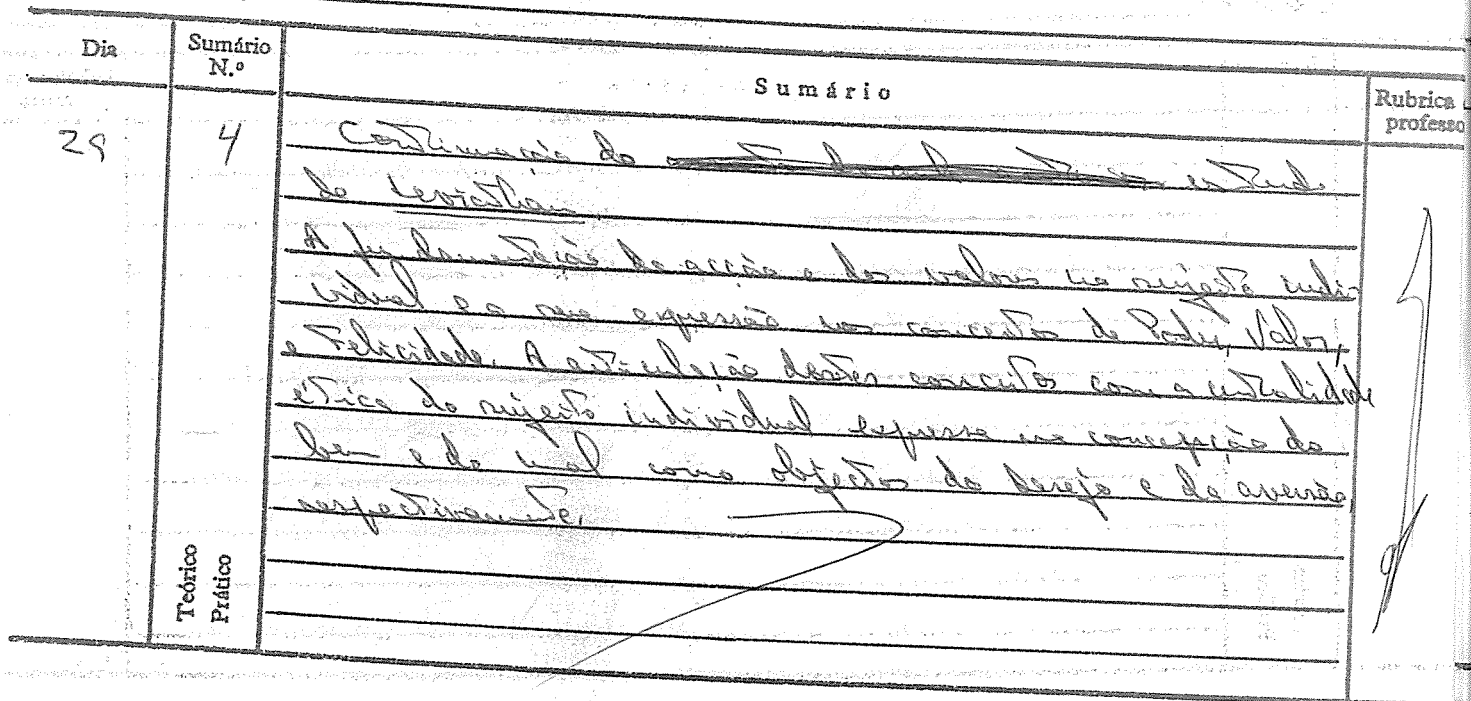 Dia
Sumário N.º
Sumário
Rubrica
professo
29
4
Continuação do estudo
do Leviathan.
A fundamentação da acção e dos valores no sujeito indi-
vidual e a sua expressão nos conceitos de Poder, Valor,
e Felicidade. A articulação destes conceitos com a centralidade
ética do sujeito individual expressa na concepção do
bem e do mal como objectos do desejo e da aversão
respectivamente.
Teórico
Prático